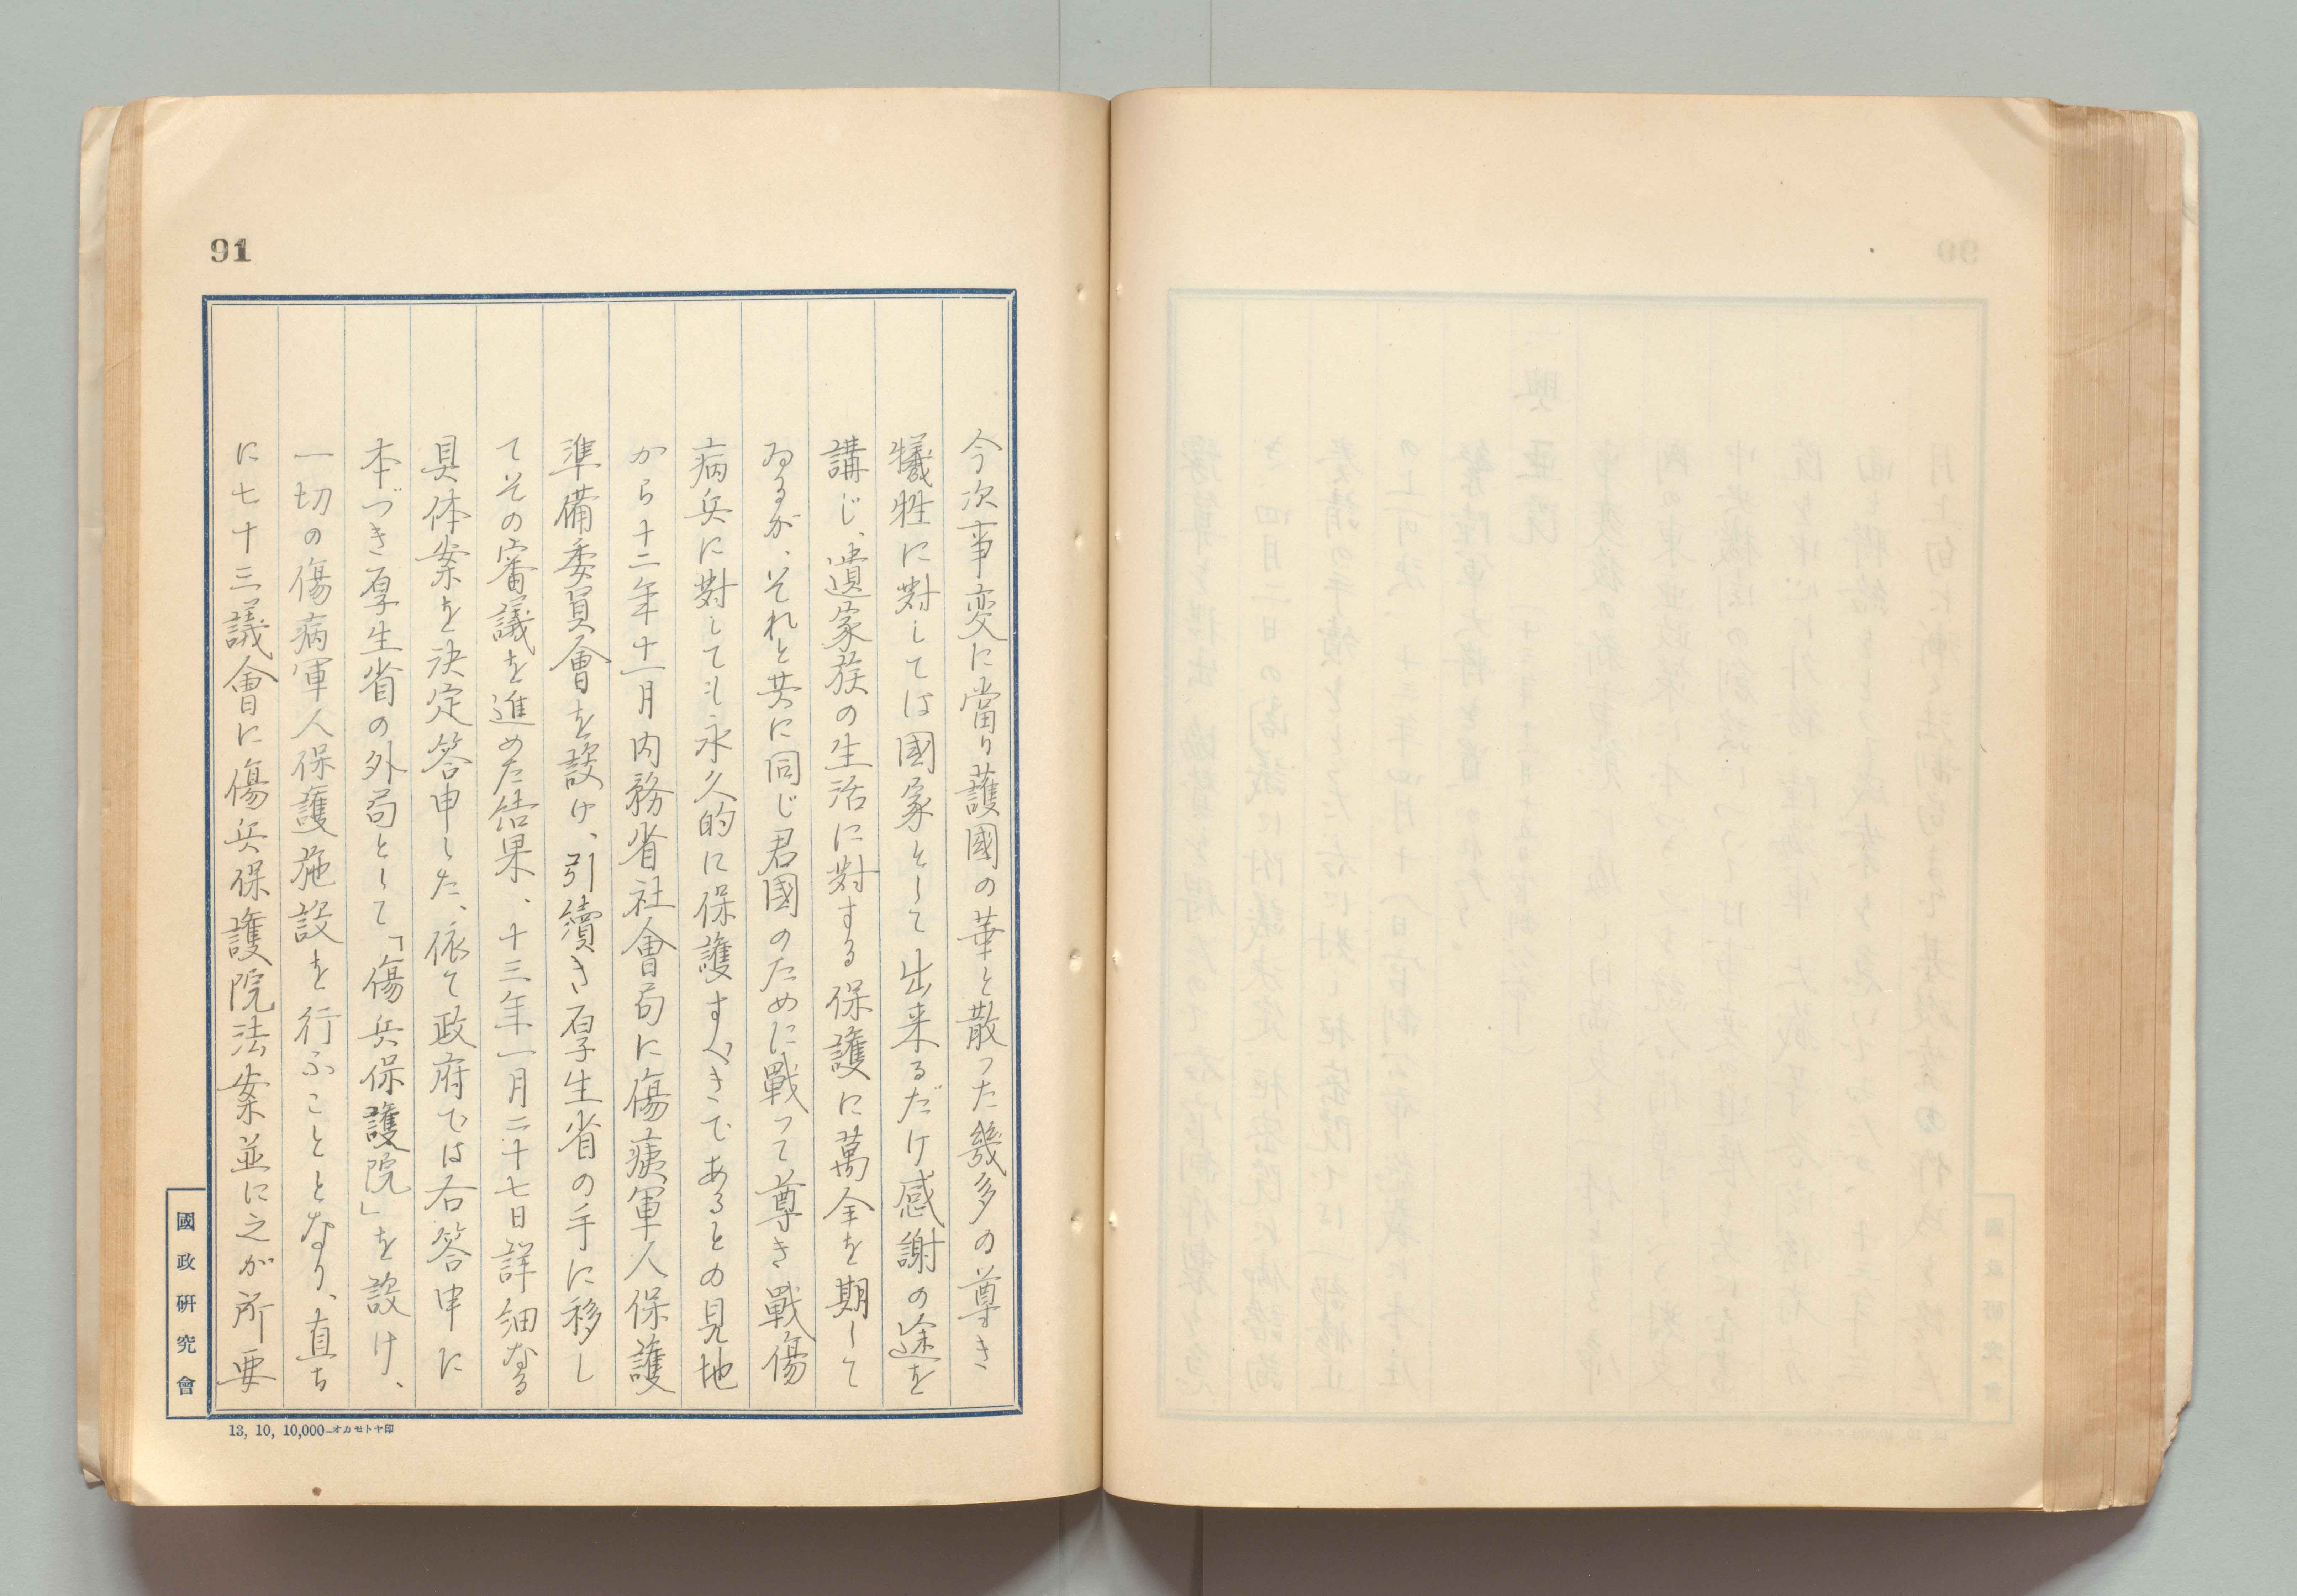 91
今次事変に當り護國の華と散った幾多の尊き
犠牲に對しては國家として出来るだけ感謝の途を
講じ、遺家族の生活に對する保護に萬全を期して
ゐるが、それと共に同じ君國のために戰って尊き戰傷
病兵に對しても永久的に保護すべきであるとの見地
から十二年十一月内務省社會局に傷痍軍人保護
準備委員會を設け、引續き厚生省の手に移し
てその審議を進めた結果、十三年一月二十七日詳細なる
具体案を決定答申した、依て政府では右答申に
本づき厚生省の外局として「傷兵保護院」を設け、
一切の傷病軍人保護施設を行ふこととなり、直ち
に七十三議會に傷兵保護院法案並に之が所要
國政研究會
13, 10, 10,000—オカモトヤ印